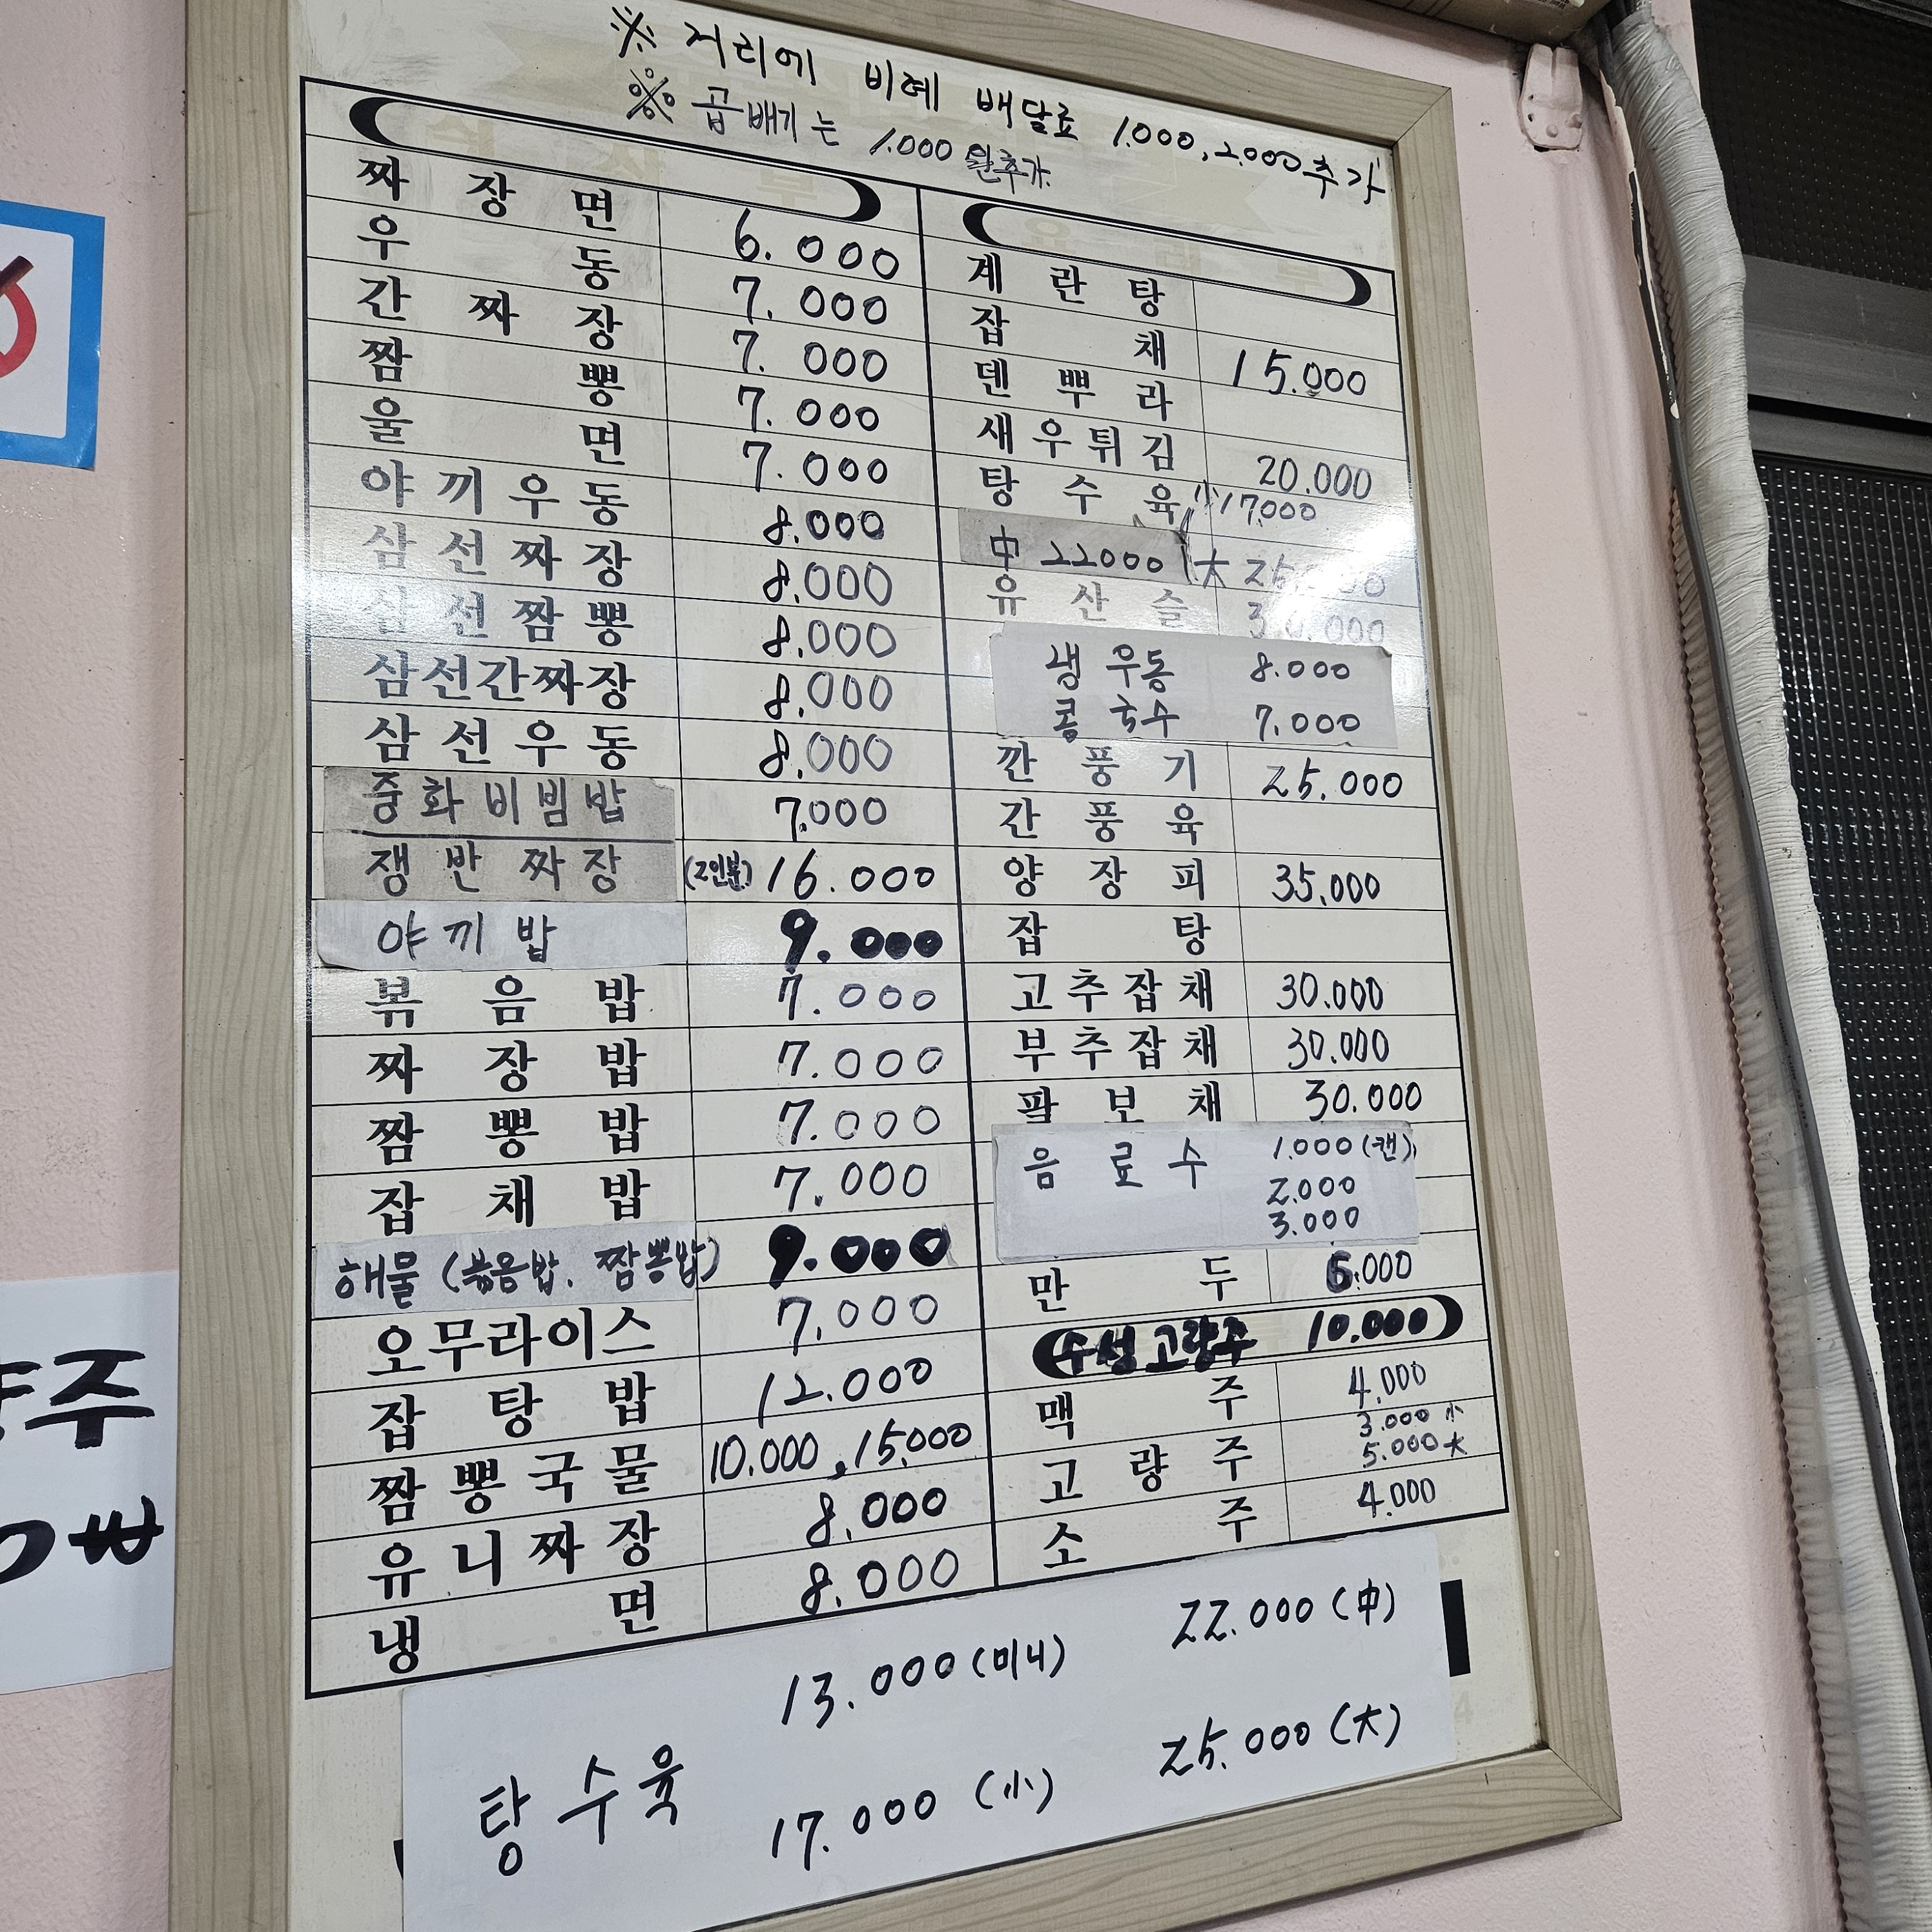 ※ 거리에 비례 배달료 1.000, 2.000추가
※ 곱배기는 1.000 원추가
짜장면 6.000
우동 7.000
간짜장 7.000
짬뽕 7.000
울면 7.000
야끼우동 8.000
삼선짜장 8.000
삼선짬뽕 8.000
삼선간짜장 8.000
삼선우동 8.000
중화비빔밥 7.000
쟁반짜장 (2인분) 16.000
야끼밥 9.000
볶음밥 7.000
짜장밥 7.000
짬뽕밥 7.000
잡채밥 7.000
해물 (볶음밥. 짬뽕밥) 9.000
오무라이스 7.000
잡탕밥 12.000
짬뽕국물 10.000, 15.000
유니짜장 8.000
냉면 8.000
계란탕
잡채 15.000
덴뿌라
새우튀김 20.000
탕수육 小 17.000
中 22000 大 25.000
유산슬 30.000
냉우동 8.000
콩국수 7.000
깐풍기 25.000
간풍육
양장피 35.000
잡탕
고추잡채 30.000
부추잡채 30.000
팔보채 30.000
음료수 1.000 (캔)
2.000
3.000
만두 6.000
수성고량주 10.000
맥주 4.000
고량주 3.000 小
5.000 大
소주 4.000
탕수육
13.000 (미니) 22.000 (中)
17.000 (小) 25.000 (大)
주
0₩